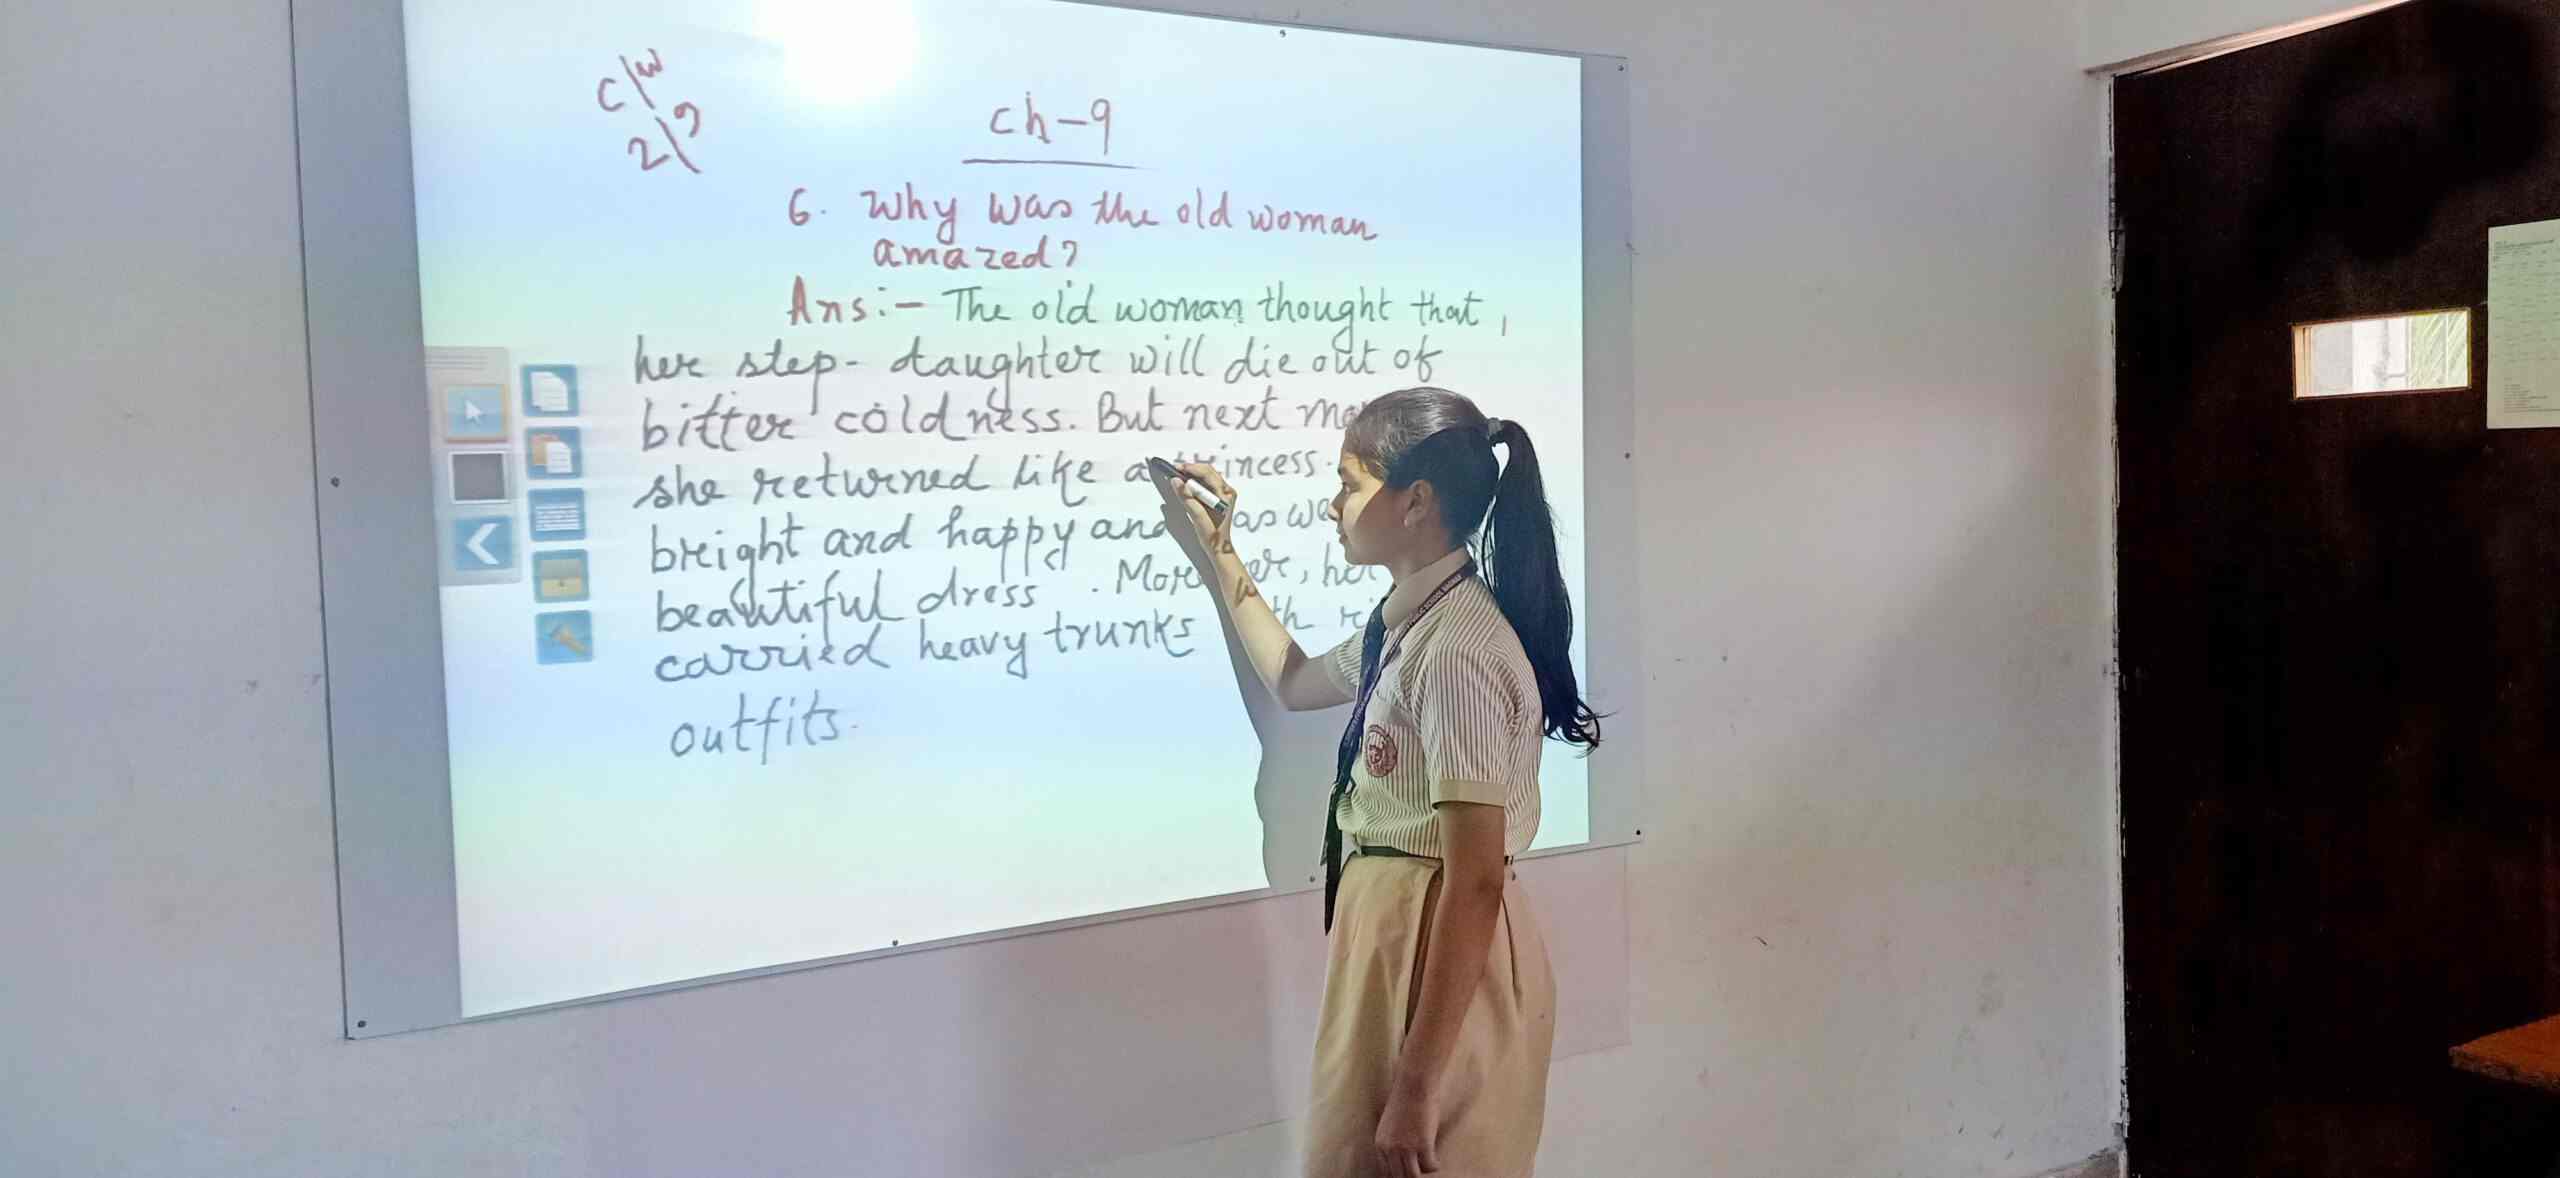 C/W
2/9
Ch-9
6. Why was the old woman
amazed?
Ans:- The old woman thought that,
her step-daughter will die out of
bitter coldness. But next
she returned like a princess.
bright and happy and as
beautiful dress. Moreover, her
carried heavy trunks
outfits.